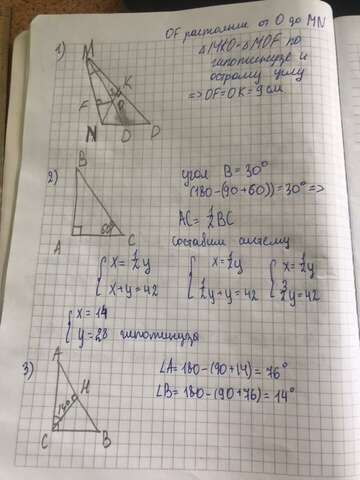 OF расстояние от O до MN
1)
ΔMKO = ΔMOF по
гипотинузе и
острому углу
=> OF = OK = 9 см
M
K
F
O
N
D
D
2)
угол B = 30°
(180-(90+60)) = 30° =>
AC = 1/2 BC
составим систему
B
60°
A
C
{ x = 1/2 y
x + y = 42
{ x = 1/2 y
1/2 y + y = 42
{ x = 1/2 y
3/2 y = 42
{ x = 14
y = 28 гипотинуза
3)
∠A = 180 - (90+14) = 76°
∠B = 180 - (90+76) = 14°
A
H
C
B